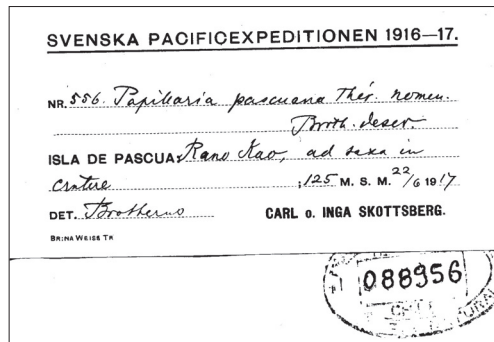 SVENSKA PACIFICEXPEDITIONEN 1916—17.
NR. 556. Papillaria pascuana Thér. nomen.
Broth. descr.
ISLA DE PASCUA: Rano Kao, ad saxa in
cratere ; 125 M. S. M. 22/6 1917
DET. Brotherus CARL o. INGA SKOTTSBERG.
BR:NA WEISS TR
088956